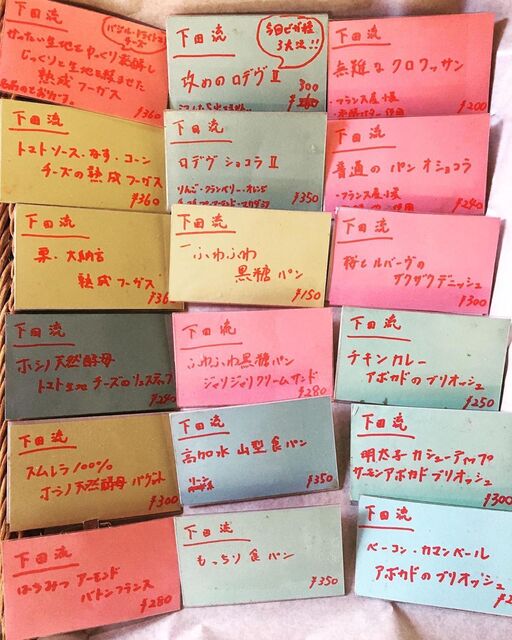 下田流
バジル・ドライトマト
チーズ
ぜったい生地をゆっくり発酵し
じっくりと生地を熟させた
熟成フーガス
¥360
下田流
今回ピザ種
3大流!!
攻めのロデヴⅡ
300
下田流
無難なクロワッサン
・フランス産小麦
¥200
下田流
トマトソース・なす・コーン
チーズの熟成フーガス
¥360
下田流
ロデヴショコラⅡ
りんご・クランベリー・オレンジ
¥350
下田流
普通のパンオショコラ
・フランス産小麦
¥240
下田流
栗・大納言
熟成フーガス
¥36
下田流
ふわふわ
黒糖パン
¥150
下田流
桜とルバーブの
ザクザクデニッシュ
¥300
下田流
ホシノ天然酵母
トマト生地チーズのリュスティック
¥240
下田流
ふわふわ黒糖パン
ジャリジャリクリームサンド
¥280
下田流
チキンカレー
アボカドのブリオッシュ
¥250
下田流
スムレラ100%
ホシノ天然酵母バゲット
¥300
下田流
高加水山型食パン
¥350
下田流
明太子カシューナッツ
サーモンアボカドブリオッシュ
¥300
下田流
はちみつアーモンド
バトンフランス
¥280
下田流
もっちり食パン
¥350
下田流
ベーコン・カマンベール
アボカドのブリオッシュ